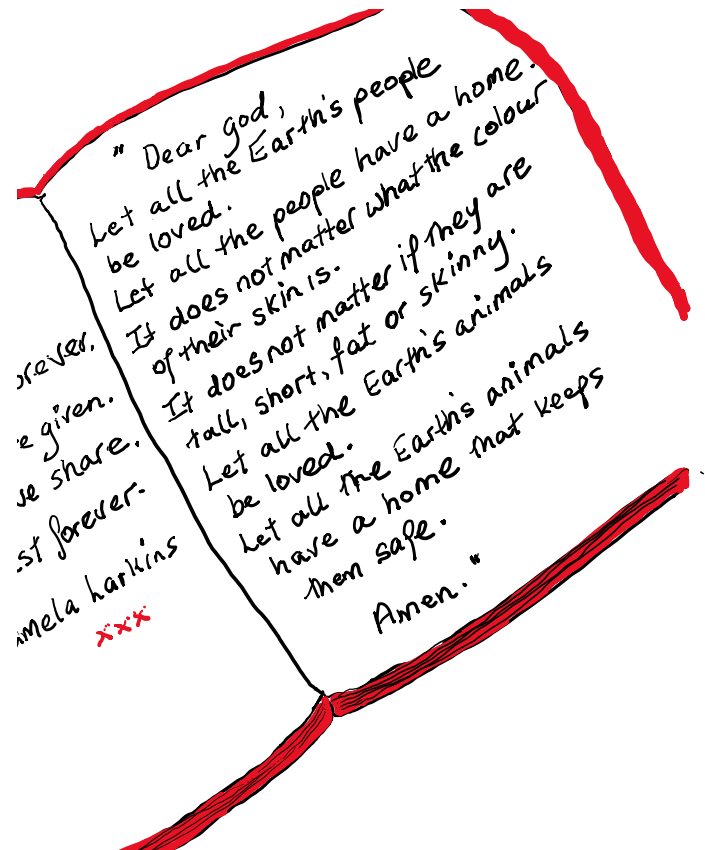 forever.
given.
share.
forever.
harkins
xxx
" Dear god,
Let all the Earth's people
be loved.
Let all the people have a home.
It does not matter what the colour
of their skin is.
It does not matter if they are
tall, short, fat or skinny.
Let all the Earth's animals
be loved.
Let all the Earth's animals
have a home that keeps
them safe.
Amen. "